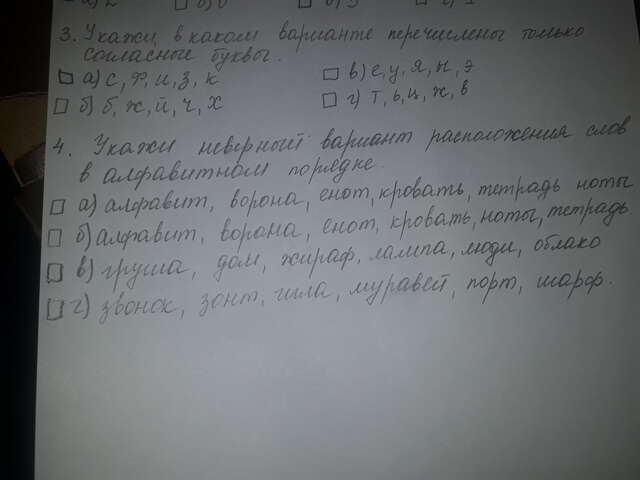 3. Укажи, в каком варианте перечислены только
согласные буквы.
а) с, ф, и, з, к
в) е, у, я, н, э
б) б, ж, й, ч, х
г) т, ь, ц, ж, в
4. Укажи неверный вариант расположения слов
в алфавитном порядке.
а) алфавит, ворона, енот, кровать, тетрадь ноты
б) алфавит, ворона, енот, кровать, ноты, тетрадь
в) груша, дом, жираф, лампа, люди, облако
г) звонок, зонт, игла, муравей, порт, шарф.